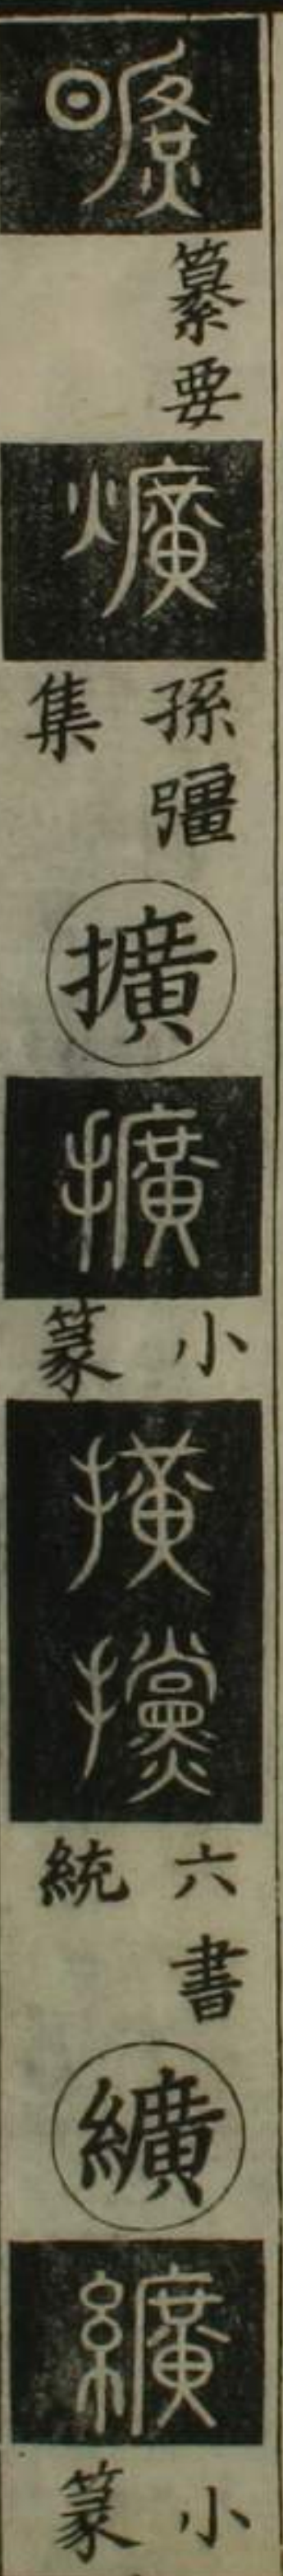 曠纂要爌孫彊集擴擴小篆撗攩六書統纊纊小篆